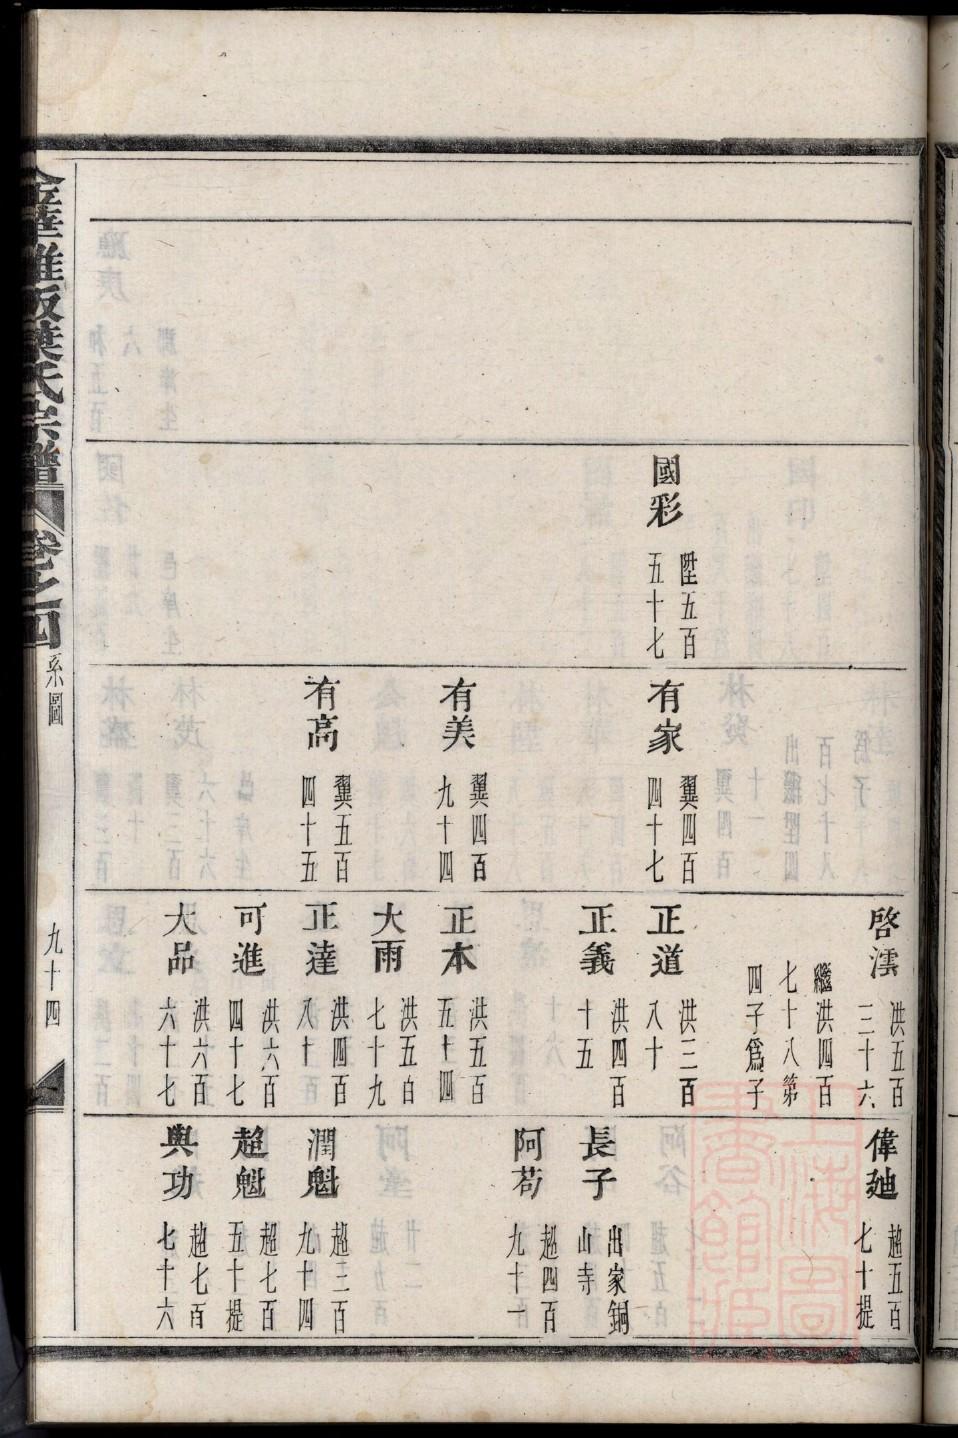 國彩
陞五百
五十七
有家
翼四百
四十七
有美
翼四百
九十四
有高
翼五百
四十五
啓澐
洪五百
三十六
繼洪四百
七十八第
四子爲子
正道
洪三百
八十
正義
洪四百
十五
正本
洪五百
五十四
大雨
洪五百
七十九
正達
洪四百
八十
可進
洪六百
四十七
大品
洪六百
六十七
偉廸
趙五百
七十提
長子
出家銅
山寺
阿苟
趙四百
九十一
潤魁
趙三百
九十四
超魁
趙七百
五十提
與功
趙七百
七十六
華雅畈葉氏宗譜
卷之四
系圖
九十四